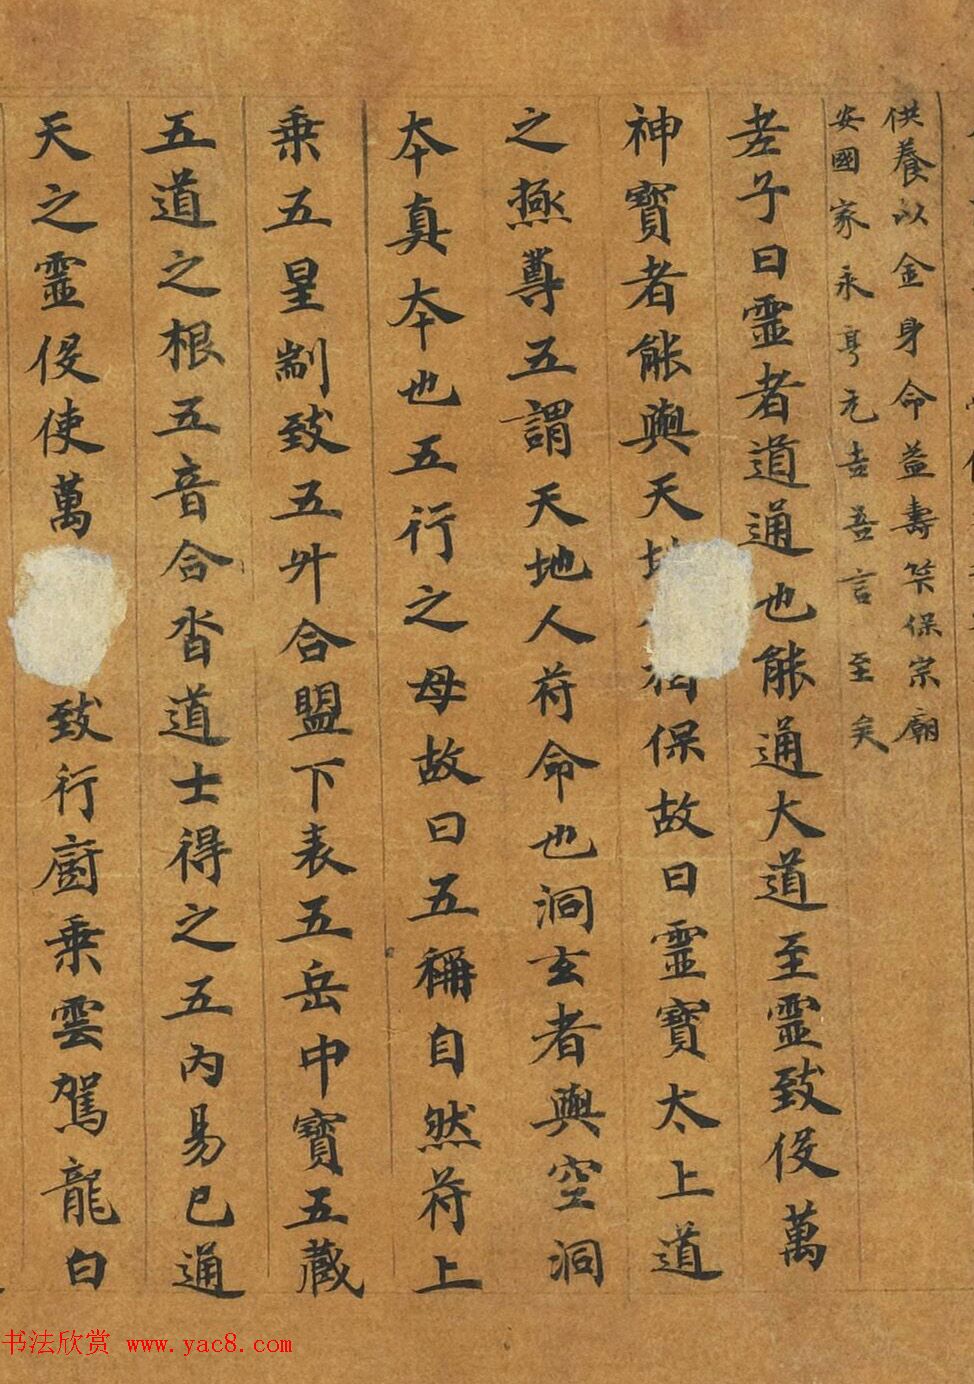 供養以金身命益壽筭保宗廟
安國家永亨元吉吾言至矣
老子曰靈者道通也能通大道至靈致伇萬
神寶者能與天地相保故曰靈寶太上道
之極尊五謂天地人符命也洞玄者與空洞
本真本也五行之母故曰五稱自然符上
乘五星制致五升合盟下表五岳中寶五藏
五道之根五音合沓道士得之五內易已通
天之靈伇使萬致行廚乘雲駕龍白
书法欣赏 www.yac8.com